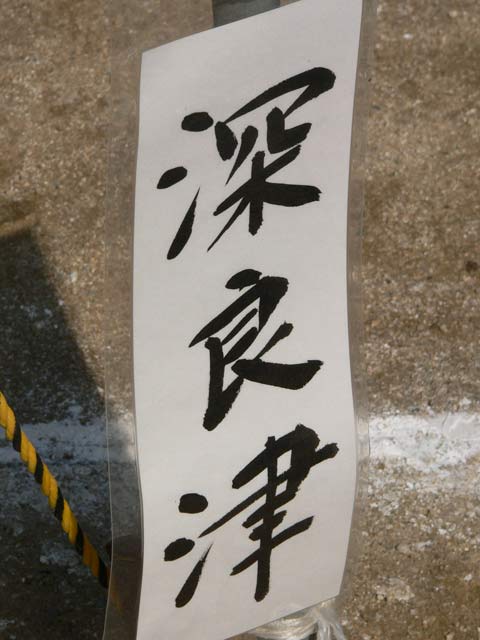 深良津